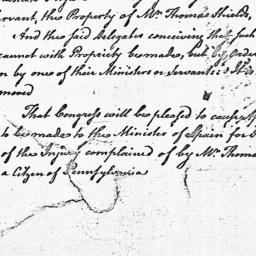 rvant, the Property of Mr. Thomas Shields,
And the said Delegates conceiving that such
cannot with Propriety be made, but by Order
n by one of their Ministers or Servants: It is
moved
That Congress will be pleased to cause
to be made to the Minister of Spain for
of the Injury complained of by Mr. Thoma
a Citizen of Pennsylvania